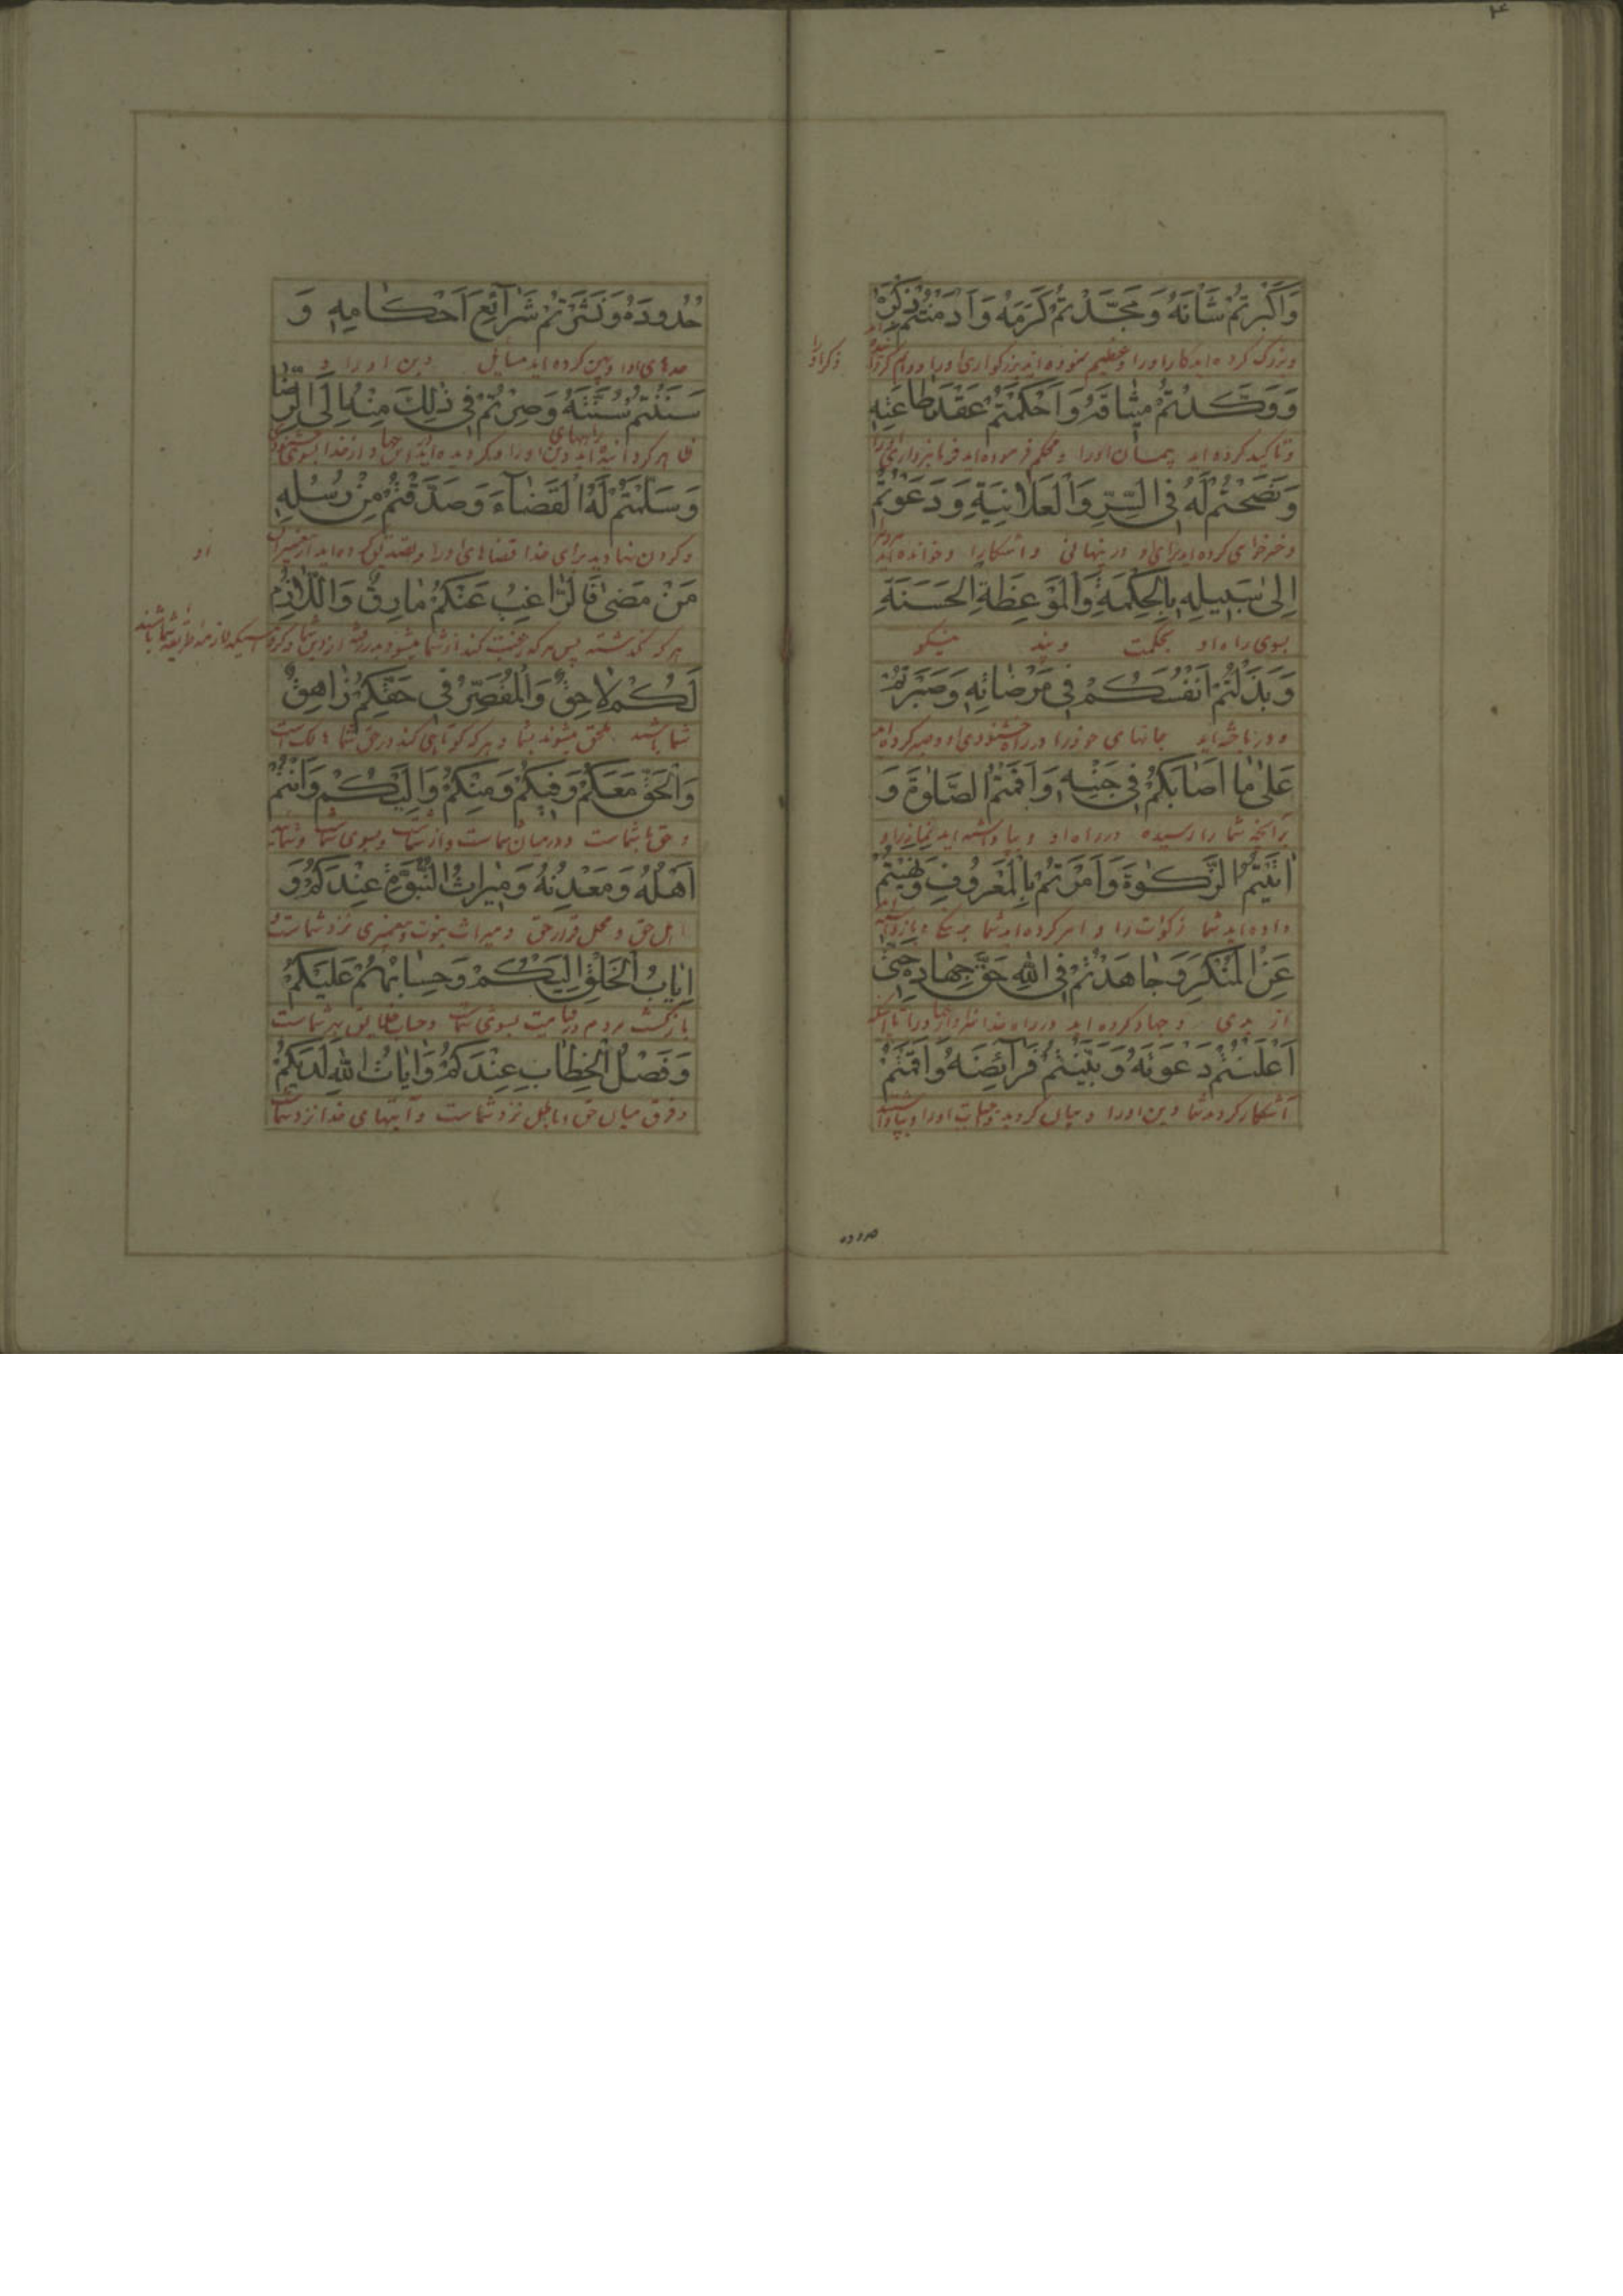 ۴
وَاَكْبَرْتُمْ شَاْنَهُ وَمَجَّدْتُمْ كَرَمَهُ وَاَدَمْتُمْ ذِكْرَهُ
وبزرک کرده اید کار اورا وعظیم نموده اید بزرکواری اورا
ذکر او را
وَوَكَّدْتُمْ مِيثَاقَهُ وَاَحْكَمْتُمْ عَقْدَ طَاعَتِهِ
وتاکید کرده اید پیمان اورا ومحکم فرموده اید فرمانبرداری
وَنَصَحْتُمْ لَهُ فِي السِّرِّ وَالْعَلَانِيَةِ وَدَعَوْتُمْ
در پنهانی واشکارا وخوانده اید
اِلىٰ سَبِيلِهِ بِالْحِكْمَةِ وَالْمَوْعِظَةِ الْحَسَنَةِ
بسوی راه او بحکمت وپند نیکو
وَبَذَلْتُمْ اَنْفُسَكُمْ فِي مَرْضَاتِهِ وَصَبَرْتُمْ
جانهای خودرا در راه خشنودی او وصبر کرده اید
عَلىٰ مَا اَصَابَكُمْ فِي جَنْبِهِ وَاَقَمْتُمُ الصَّلٰوةَ وَ
برآنچه شما را رسیده در راه او وبپا داشته اید نماز را و
اٰتَيْتُمُ الزَّكٰوةَ وَاَمَرْتُمْ بِالْمَعْرُوفِ وَنَهَيْتُمْ
داده اید شما زکوات را وامر کرده اید شما
عَنِ الْمُنْكَرِ وَجَاهَدْتُمْ فِي اللّٰهِ حَقَّ جِهَادِهِ حَتّىٰ
از بدی وجهاد کرده اید در راه خدا
اَعْلَنْتُمْ دَعْوَتَهُ وَبَيَّنْتُمْ فَرَآئِضَهُ وَاَقَمْتُمْ
آشکار کردید شما دین اورا وبیان کردید واجبات اورا
حُدُودَهُ وَنَشَرْتُمْ شَرَآئِعَ اَحْكَامِهِ وَ
حدهای اورا وپهن کرده اید مسایل دین اورا و
سَنَنْتُمْ سُنَّتَهُ وَصِرْتُمْ فِي ذٰلِكَ مِنْهُ اِلَى الرِّضَا
وَسَلَّمْتُمْ لَهُ الْقَضَآءَ وَصَدَّقْتُمْ مِنْ رُسُلِهِ
وکردن نهادید برای خدا قضاهای اورا وتصدیق کرده اید از پیغمبران
او
مَنْ مَضىٰ فَالرَّاغِبُ عَنْكُمْ مَارِقٌ وَاللَّازِمُ
هرکه گذشته پس هرکه رغبت کند از شما
لَكُمْ لَاحِقٌ وَالْمُقَصِّرُ فِي حَقِّكُمْ زَاهِقٌ
ملحق میشوند بشما وهرکه کوتاهی کند در حق شما هالک است
وَالْحَقُّ مَعَكُمْ وَفِيكُمْ وَمِنْكُمْ وَاِلَيْكُمْ وَاَنْتُمْ
وحق با شماست ودر میان شماست واز شماست وبسوی شماست وشمائید
اَهْلُهُ وَمَعْدِنُهُ وَمِيرَاثُ النُّبُوَّةِ عِنْدَكُمْ وَ
اهل حق ومحل قرار حق ومیراث نبوت وپیغمبری نزد شماست و
اِيَابُ الْخَلْقِ اِلَيْكُمْ وَحِسَابُهُمْ عَلَيْكُمْ
بازگشت مردم در قیامت بسوی شماست وحساب خلایق بر شماست
وَفَصْلُ الْخِطَابِ عِنْدَكُمْ وَاٰيَاتُ اللّٰهِ لَدَيْكُمْ
وفرق میان حق وباطل نزد شماست وآیتهای خدا نزد شماست
حدوده